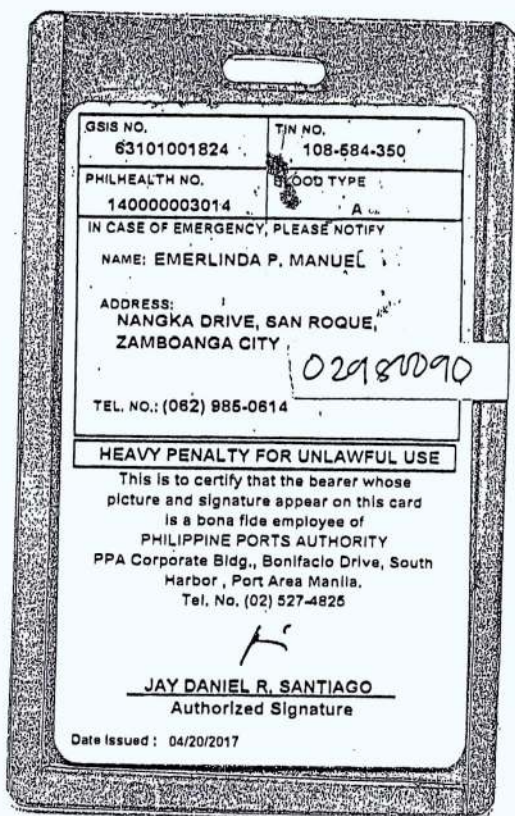 GSIS NO.
63101001824
TIN NO.
108-584-350
PHILHEALTH NO.
140000003014
BLOOD TYPE
A
IN CASE OF EMERGENCY, PLEASE NOTIFY
NAME: EMERLINDA P. MANUEL
ADDRESS:
NANGKA DRIVE, SAN ROQUE,
ZAMBOANGA CITY
TEL. NO.: (062) 985-0614
HEAVY PENALTY FOR UNLAWFUL USE
This is to certify that the bearer whose
picture and signature appear on this card
is a bona fide employee of
PHILIPPINE PORTS AUTHORITY
PPA Corporate Bldg., Bonifacio Drive, South
Harbor , Port Area Manila.
Tel. No. (02) 527-4825
JAY DANIEL R. SANTIAGO
Authorized Signature
Date Issued : 04/20/2017